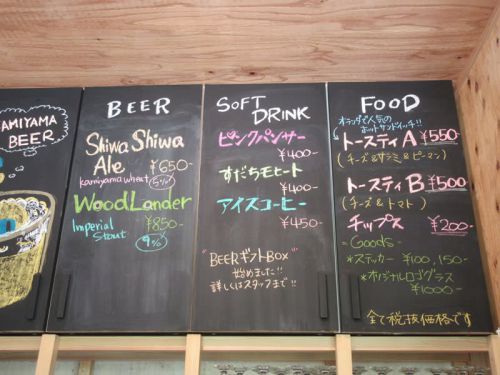 KAMIYAMA
BEER
BEER
Shiwa Shiwa
Ale ¥650-
kamiyama wheat 5%
WoodLander
Imperial ¥850-
Stout 9%
SOFT
DRINK
ピンクパンサー
¥400-
すだちモヒート
¥400-
アイスコーヒー
¥450-
"BEERギフトBOX"
始めました!!
詳しくはスタッフまで!!
FOOD
オランダで人気の
ホットサンドイッチ!!
トースティA ¥550-
(チーズ&サラミ&ピーマン)
トースティB ¥500
(チーズ&トマト)
チップス ¥200-
Goods
*ステッカー ¥100,150-
*オリジナルロゴグラス
¥1000-
全て税抜価格です